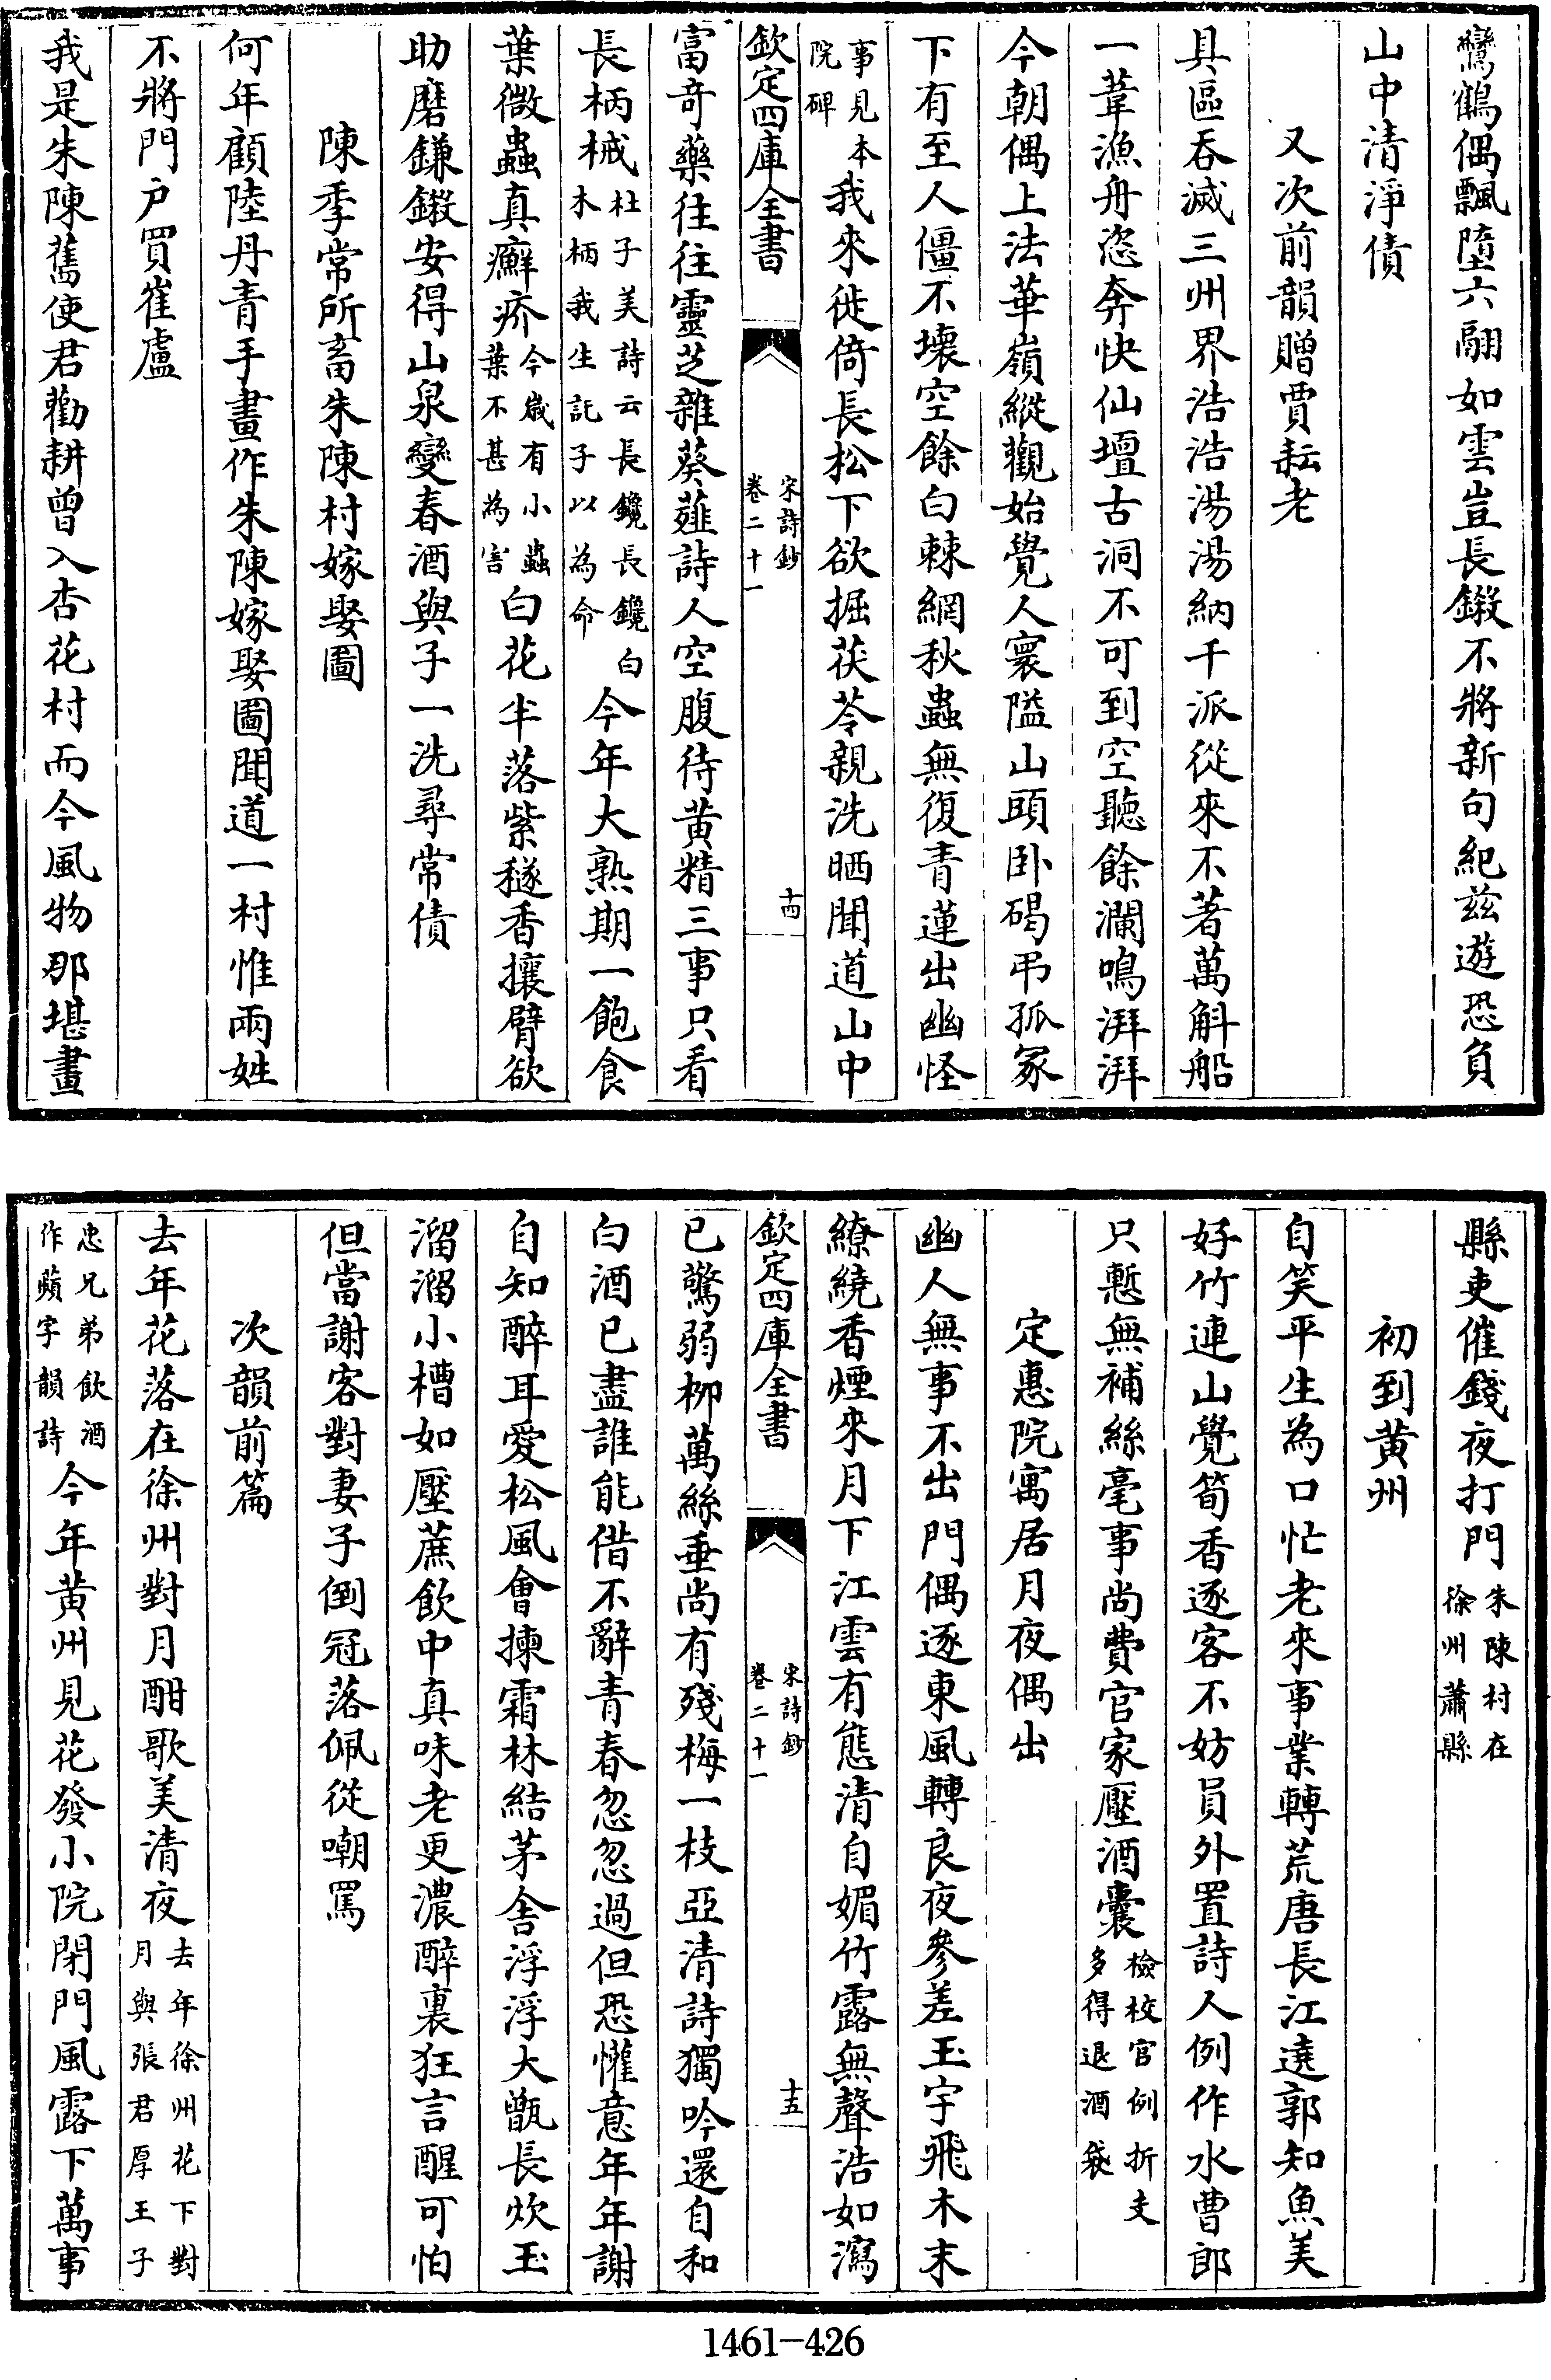 鸞鶴偶飄墮六翮如雲豈長鎩不將新句紀兹遊恐負
山中清淨債
又次前韻贈賈耘老
具區吞滅三州界浩浩湯湯納千派從來不著萬斛船
一葦漁舟恣奔快仙壇古洞不可到空聽餘瀾鳴湃湃
今朝偶上法華嶺縱觀始覺人寰隘山頭卧碣弔孤冢
下有至人僵不壞空餘白棘網秋蟲無復青蓮出幽怪
事見本院碑我來徙倚長松下欲掘茯苓親洗晒聞道山中
欽定四庫全書
宋詩鈔
卷二十一
十四
富奇藥往往靈芝雜葵薤詩人空腹待黄精三事只看
長柄械杜子美詩云長鑱長鑱白木柄我生託子以為命今年大熟期一飽食
葉微蟲真癬疥今歲有小蟲葉不甚為害白花半落紫穟香攘臂欲
助磨鎌鎩安得山泉變春酒與子一洗尋常債
陳季常所畜朱陳村嫁娶圖
何年顧陸丹青手畫作朱陳嫁娶圖聞道一村惟兩姓
不將門户買崔盧
我是朱陳舊使君勸耕曾入杏花村而今風物那堪畫
縣吏催錢夜打門朱陳村在徐州蕭縣
初到黄州
自笑平生為口忙老來事業轉荒唐長江遶郭知魚美
好竹連山覺筍香逐客不妨員外置詩人例作水曹郎
只慙無補絲毫事尚費官家壓酒囊檢校官例折支多得退酒袋
定惠院寓居月夜偶出
幽人無事不出門偶逐東風轉良夜參差玉宇飛木末
繚繞香煙來月下江雲有態清自媚竹露無聲浩如瀉
欽定四庫全書
宋詩鈔
卷二十一
十五
已驚弱柳萬絲垂尚有殘梅一枝亞清詩獨吟還自和
白酒已盡誰能借不辭青春忽忽過但恐懽意年年謝
自知醉耳愛松風會揀霜林結茅舍浮浮大甑長炊玉
溜溜小槽如壓蔗飲中真味老更濃醉裏狂言醒可怕
但當謝客對妻子倒冠落佩從嘲罵
次韻前篇
去年花落在徐州對月酣歌美清夜去年徐州花下對月與張君厚王子
忠兄弟飲酒作蘋字韻詩今年黄州見花發小院閉門風露下萬事
1461-426